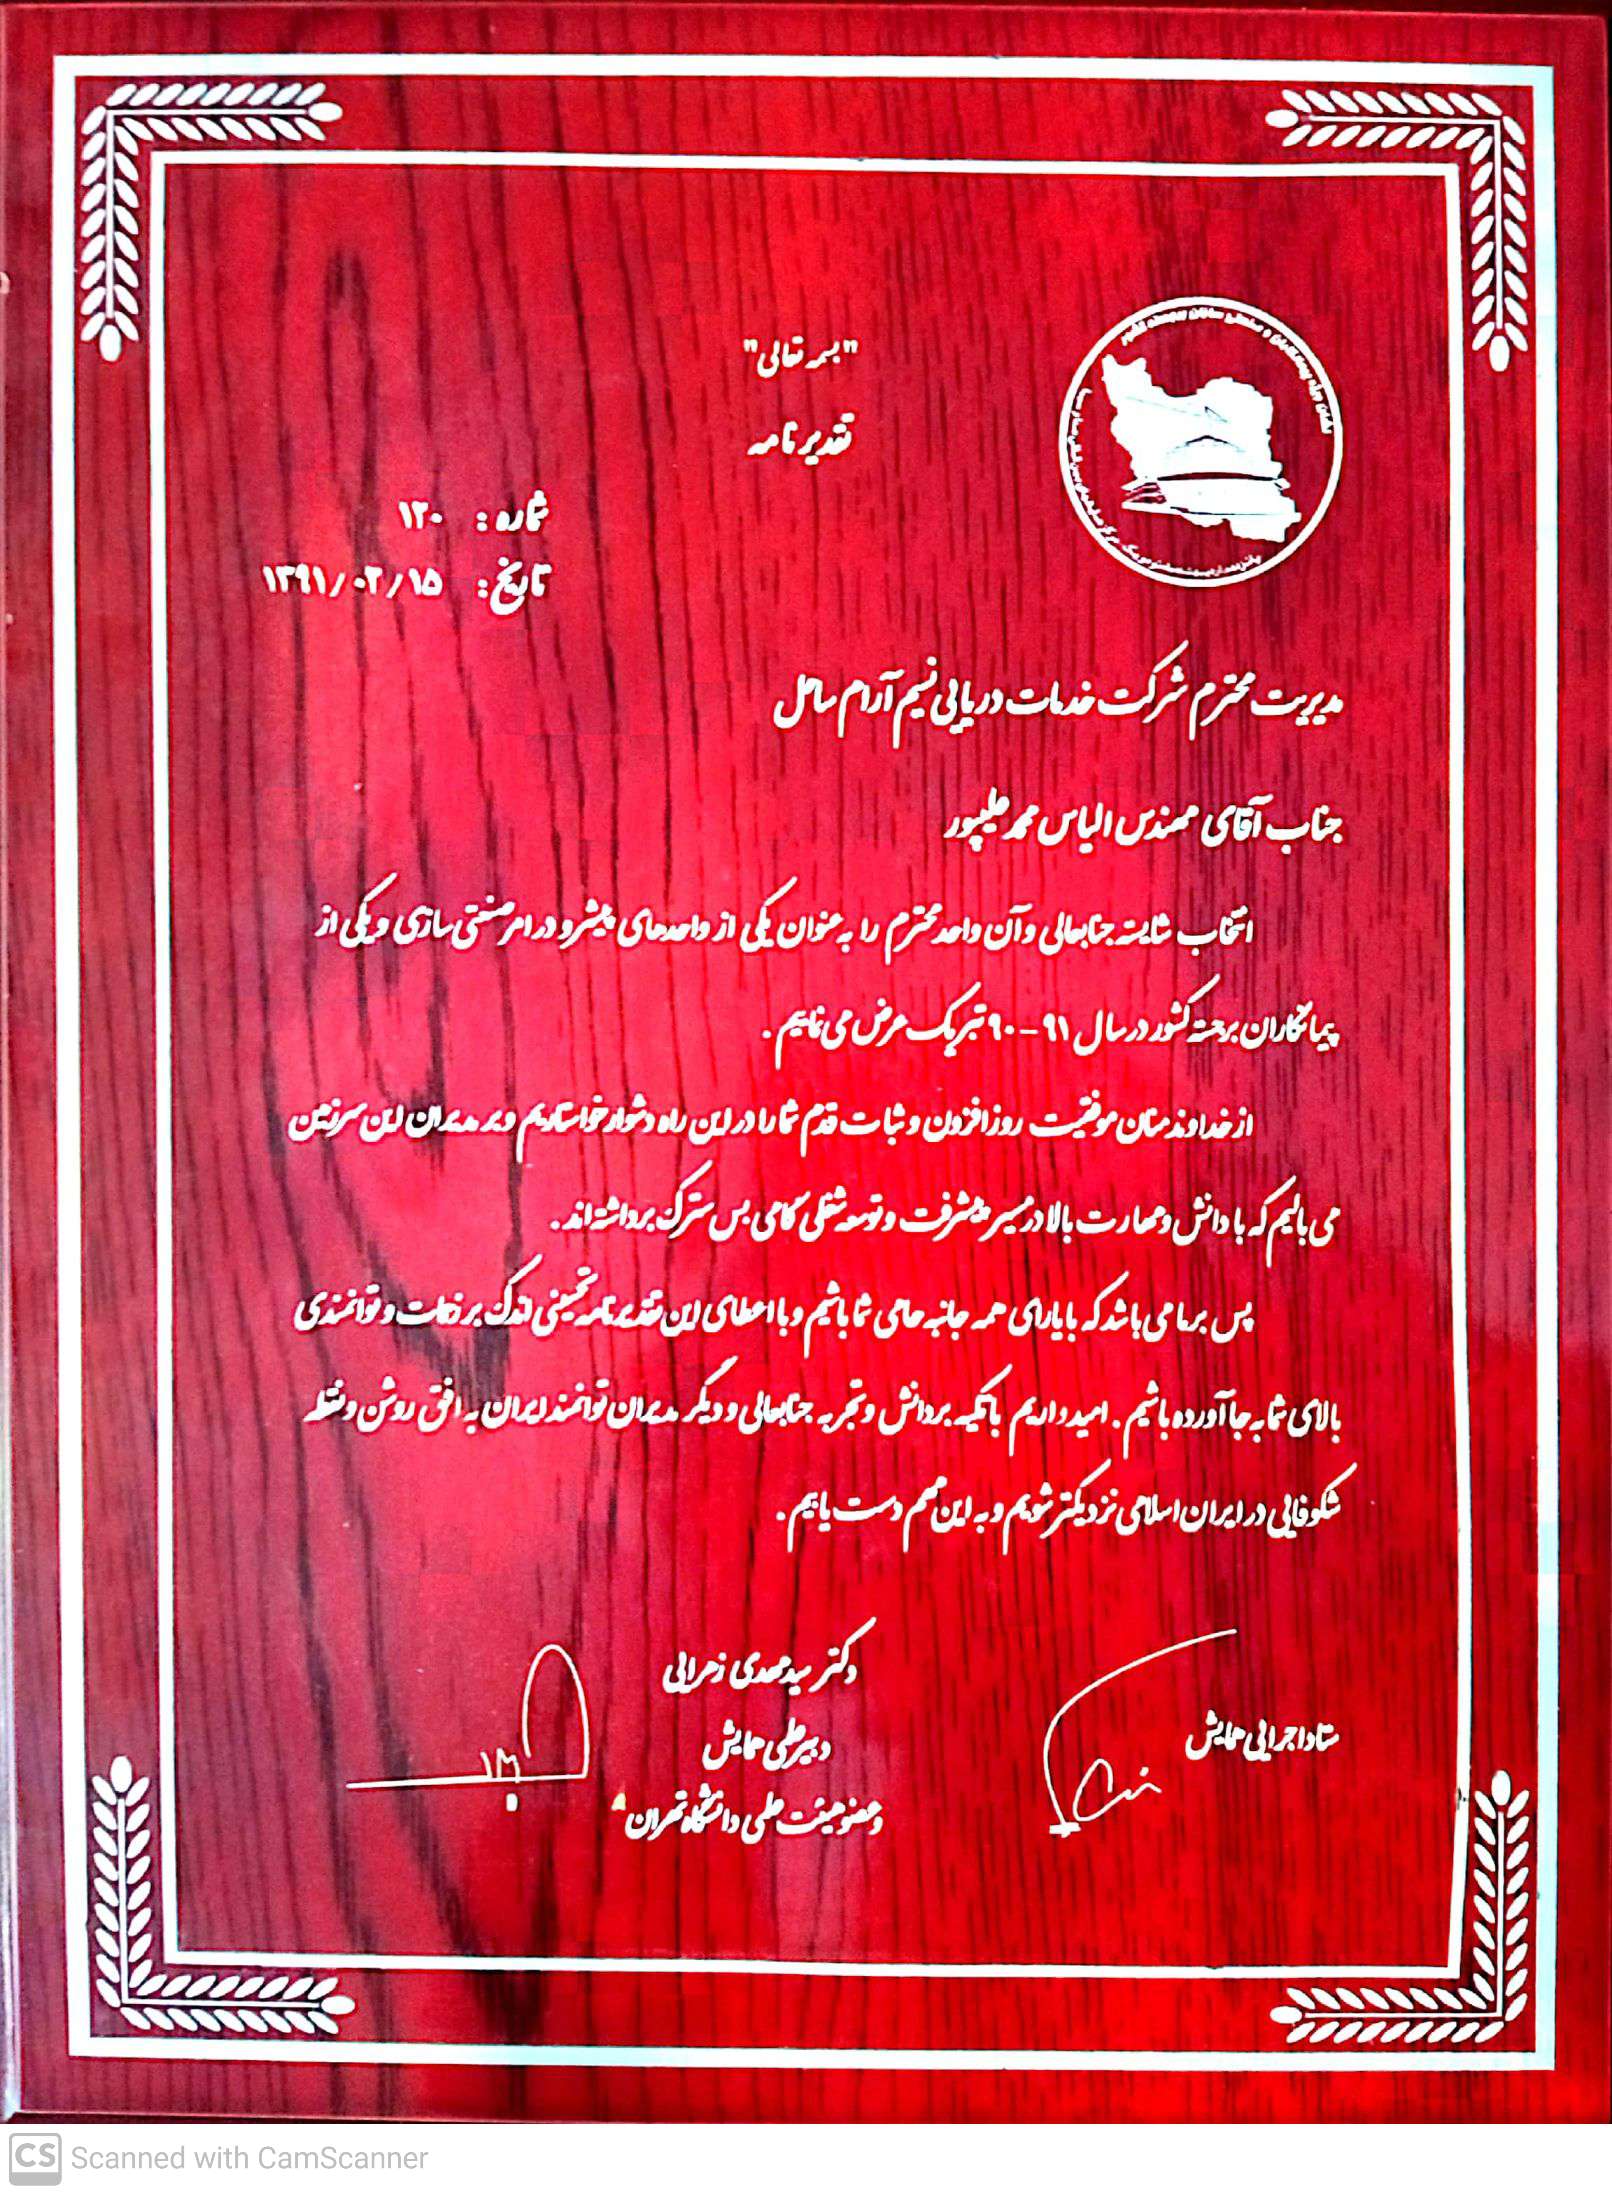 "بسمه تعالی"
تقدیر نامه
شماره : ۱۲۰
تاریخ: ۱۳۹۱/۰۲/۱۵
مدیریت محترم شرکت خدمات دریایی نسیم آرام ساحل
جناب آقای مهندس الیاس محمد علیپور
انتخاب شایسته جنابعالی و آن واحد محترم را به عنوان یکی از واحدهای پیشرو در امر صنعتی سازی و یکی از
پیمانکاران برجسته کشور در سال ۹۱-۹۰ تبریک عرض می نماییم .
از خداوند منان موفقیت روز افزون و ثبات قدم شما را در این راه دشوار خواستاریم و بر مدیران این سرزمین
می بالیم که با دانش و مهارت بالا در مسیر پیشرفت و توسعه شغلی گامی بس سترگ برداشته اند .
پس بر ما می باشد که با یارای همه جانبه حامی شما باشیم و با اعطای این تقدیر نامه تحسینی اندک بر زحمات و توانمندی
بالای شما به جا آورده باشیم . امید داریم با تکیه بر دانش و تجربه جنابعالی و دیگر مدیران توانمند ایران به افق روشن و نقطه
شکوفایی در ایران اسلامی نزدیکتر شویم و به این مهم دست یابیم .
ستاد اجرایی همایش
دکتر سید مهدی زهرایی
دبیر علمی همایش
و عضو هیئت علمی دانشگاه تهران
CS Scanned with CamScanner